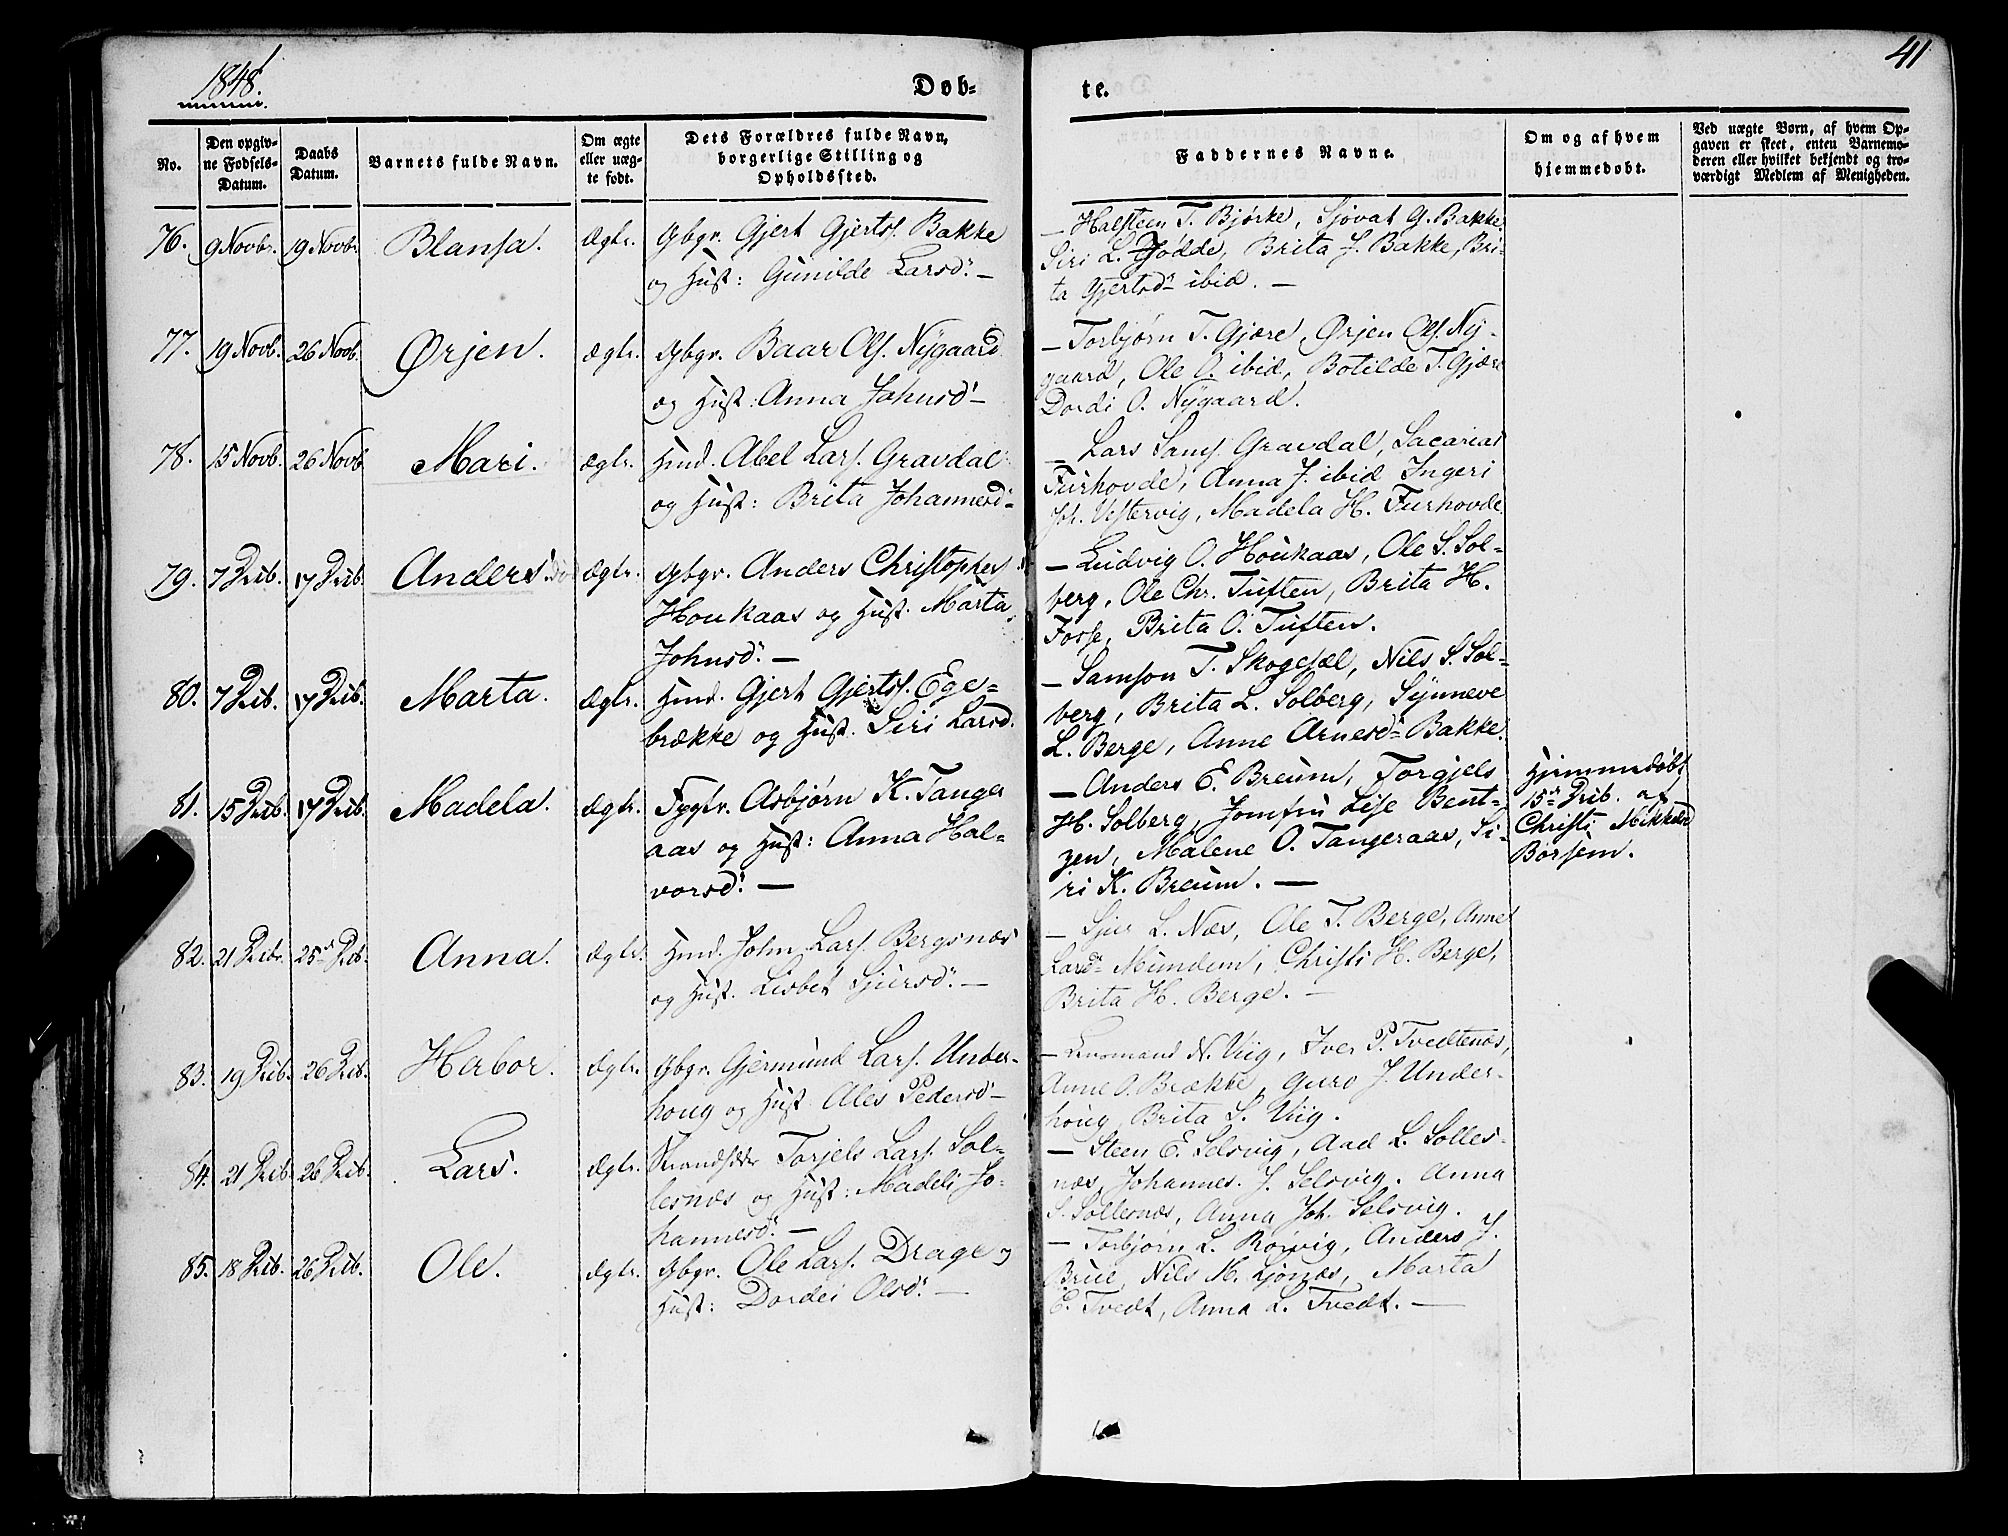 1848.
Døb-
te.
41
No.
Den opgiv-
ne Fødsels-
Datum.
Daabs
Datum.
Barnets fulde Navn.
Om ægte
eller uæg-
te født.
Dets Forældres fulde Navn,
borgerlige Stilling og
Opholdssted.
Faddernes Navne.
Om og af hvem
hjemmedøbt.
Ved uægte Børn, af hvem Op-
gaven er skeet, enten Barnemo-
deren eller hvilket bekjendt og tro-
værdigt Medlem af Menigheden.
76. 9 Novbr. 19 Novbr. Blansa. ægte. Gbgr. Gjert Gjerts. Bakke
og Hust: Gunilde Larsd. —
— Halsteen T. Bjørke, Sjovat G. Bakke,
Siri L. Tjødde, Brita J. Bakke, Bri-
ta Gjertsd. ibid. —
77. 19 Novb. 26 Novb. Ørjen. ægte. Gbgr. Baar Ols. Nygaard
og Hust: Anna Johnsd. —
— Torbjørn T. Gjære, Ørjen Ols. Ny-
gaard, Ole O. ibid, Botilde T. Gjære
Dordi O. Nygaard.
78. 15 Novb. 26 Novb. Mari. ægte. Hmd. Abel Lars. Gravdal
og Hust: Brita Johannesd.
— Lars Sams. Gravdal, Sacarias
Furhovde, Anna J. ibid Ingeri
Joh. Vestervig, Madela H. Furhovde
79. 7 Dcb. 17 Dcb. Anders. ægte. Gbgr. Anders Christophers.
Houkaas og Hust. Marta
Johnsd. —
— Ludvig O. Houkaas, Ole S. Sol-
berg, Ole Chr. Tuften, Brita H.
Fosse, Brita O. Tuften.
80. 7 Dcb. 17 Dcb. Marta. ægte. Hmd. Gjert Gjerts. Ege-
brække og Hust. Siri Larsd.
— Samson T. Skogesæl, Nils S. Sol-
berg, Brita L. Solberg, Synneve
L. Berge, Anne Arnesd. Bakke.
81. 15 Dcb. 17 Dcb. Madela. ægte. Asbjørn K. Tanger
aas og Hust: Anna Hal-
vorsd. —
— Anders E. Breum, Torgjels
H. Solberg, Jomfru Lise Bent-
zen, Malene O. Tangeraas, Si-
ri K. Breum. —
Hjemmedøbt
15de Dcb. af
Christi Mikkelsd
Børsem.
82. 21 Dcbr. 25de Dcb. Anna. ægte. Hmd. John Lars. Bergsnæs
og Hust. Lisbet Sjursd. —
— Sjur L. Næs, Ole T. Berge, Anne
Larsd. Mundem, Christi H. Berge,
Brita H. Berge. —
83. 19 Dcb. 26 Dcb. Habor. ægte. Gbgr. Gjermund Lars. Under-
houg og Hust. Ales Pedersd. —
— Lensmand N. Viig, Iver P. Tvedtenæs,
Anne O. Brække, Guro J. Under-
houg, Brita S. Viig.
84. 21 Dcb. 26 Dcb. Lars. ægte. Torjels Lars. Sol-
lesnæs og Hust: Madeli Jo-
hannesd. —
— Steen E. Selsvig, Aad L. Solles-
næs, Johannes J. Selsvig. Anna
S. Sollesnæs, Anna Joh. Selsvig.
85. 18 Dcb. 26 Dcb. Ole. ægte. Gbgr. Ole Lars. Drage og
Hust: Dordei Olsd. —
— Torbjørn L. Rørvig, Anders J.
Brue, Nils M. Ljønæs, Marta
E. Tvedt, Anna L. Tvedt. —